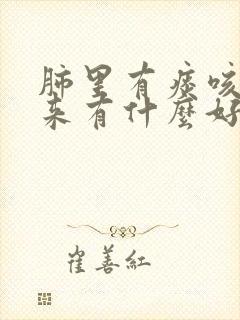 肺里有痰咳
来有什麼好
崔善紅